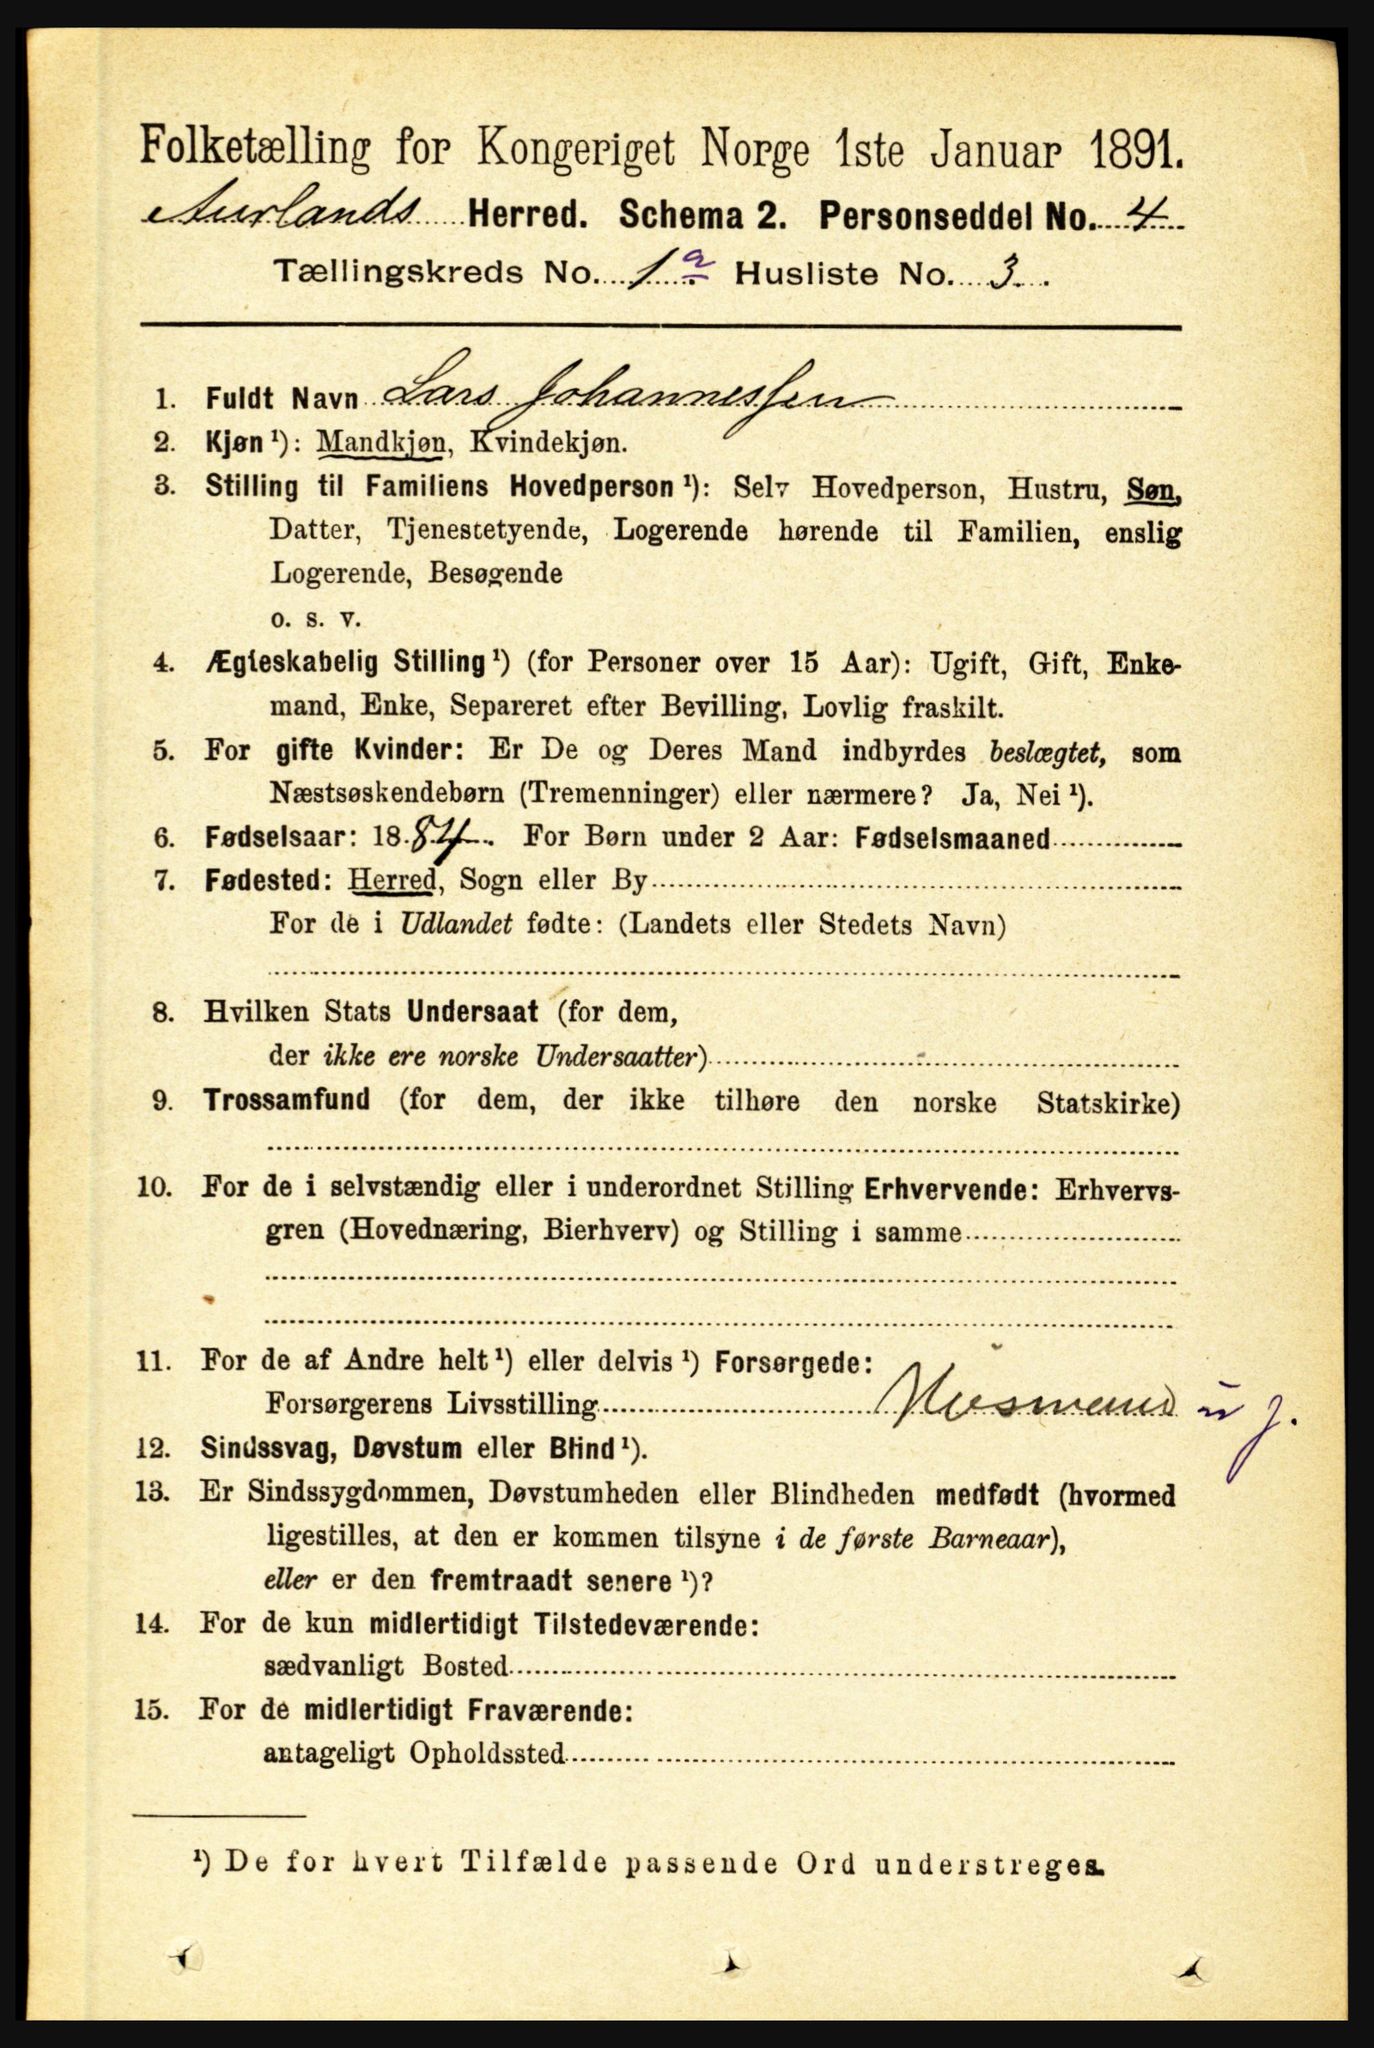 Folketælling for Kongeriget Norge 1ste Januar 1891.
Aurlands Herred. Schema 2. Personseddel No. 4
Tællingskreds No. 1 a Husliste No. 3.
1. Fuldt Navn Lars Johannessen
2. Kjøn ¹): Mandkjøn, Kvindekjøn.
3. Stilling til Familiens Hovedperson ¹): Selv Hovedperson, Hustru, Søn,
Datter, Tjenestetyende, Logerende hørende til Familien, enslig
Logerende, Besøgende
o. s. v.
4. Ægteskabelig Stilling ¹) (for Personer over 15 Aar): Ugift, Gift, Enke-
mand, Enke, Separeret efter Bevilling, Lovlig fraskilt.
5. For gifte Kvinder: Er De og Deres Mand indbyrdes beslægtet, som
Næstsøskendebørn (Tremenninger) eller nærmere? Ja, Nei ¹).
6. Fødselsaar: 1884. For Børn under 2 Aar: Fødselsmaaned
7. Fødested: Herred, Sogn eller By
For de i Udlandet fødte: (Landets eller Stedets Navn)
8. Hvilken Stats Undersaat (for dem,
der ikke ere norske Undersaatter)
9. Trossamfund (for dem, der ikke tilhøre den norske Statskirke)
10. For de i selvstændig eller i underordnet Stilling Erhvervende: Erhvervs-
gren (Hovednæring, Bierhverv) og Stilling i samme
11. For de af Andre helt ¹) eller delvis ¹) Forsørgede:
Forsørgerens Livsstilling Husmand u j.
12. Sindssvag, Døvstum eller Blind ¹).
13. Er Sindssygdommen, Døvstumheden eller Blindheden medfødt (hvormed
ligestilles, at den er kommen tilsyne i de første Barneaar),
eller er den fremtraadt senere ¹)?
14. For de kun midlertidigt Tilstedeværende:
sædvanligt Bosted
15. For de midlertidigt Fraværende:
antageligt Opholdssted
¹) De for hvert Tilfælde passende Ord understreges.